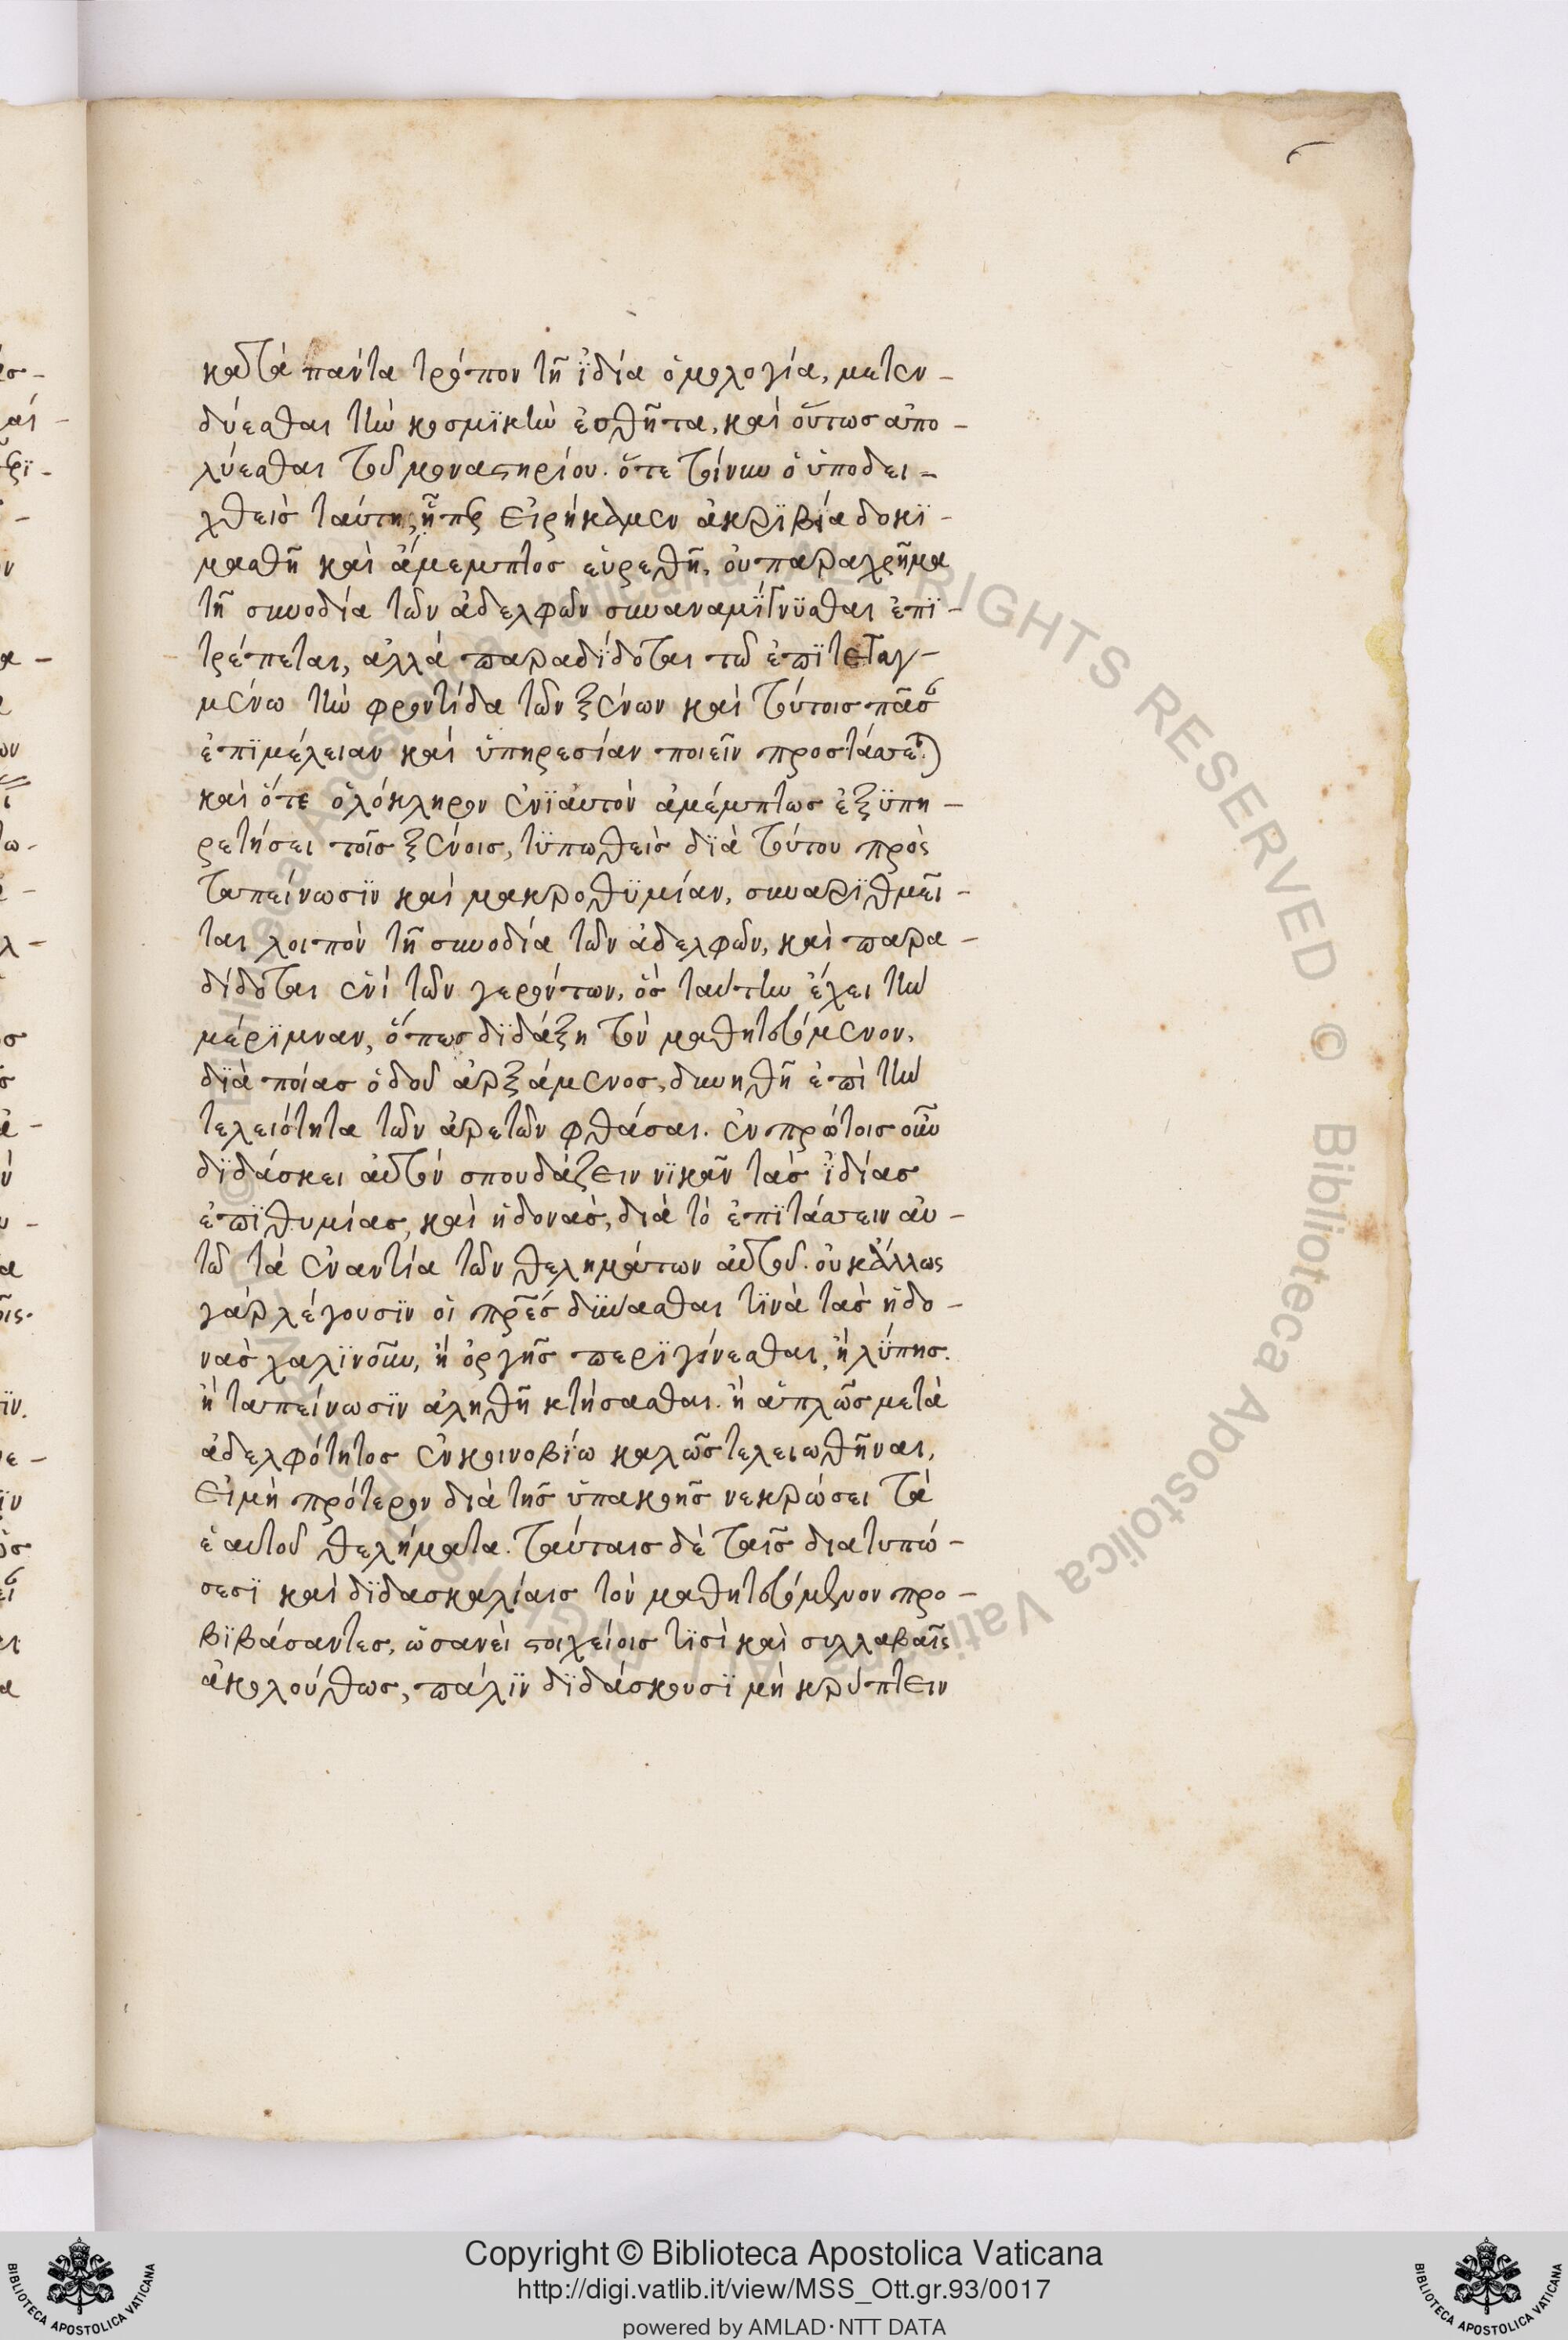 κατὰ πάντα τρόπον τῆ ἰδία ὁμολογία, μετεν-
δύεσθαι τὴν κοσμϊκὴν ἐσθῆτα, καὶ οὕτως ἀπο-
λύεσθαι τοῦ μοναστηρίου. ὅτε τοίνυν ὁ ὑποδει-
χθεὶς ταύτη, ᾗπερ εἰρήκαμεν ἀκρϊβία δοκϊ-
μασθῆ καὶ ἄμεμπτος εὑρεθῆ, οὐ παραχρῆμα
τῆ συνοδία τῶν ἀδελφῶν συναναμΐγνϋσθαι ἐπϊ-
τρέπεται, ἀλλὰ παραδίδοται τῶ ἐπϊτεταγ-
μένω τὴν φροντίδα τῶν ξένων καὶ τούτοις πᾶσαν
ἐπϊμέλειαν καὶ ὑπηρεσίαν ποιεῖν προστάσσεται
καὶ ὅτε ὁλόκληρον ἐνϊαυτὸν ἀμέμπτως ἐξϋπη-
ρετήσει τοῖς ξένοις, τϋπωθεὶς δϊὰ τούτου πρὸς
ταπείνωσϊν καὶ μακροθϋμίαν, συναρϊθμεῖ-
ται λοιπὸν τῆ συνοδία τῶν ἀδελφῶν, καὶ παρα-
δίδοται ἑνὶ τῶν γερόντων, ὃς ταύτην ἔχει τὴν
μέρϊμναν, ὅπως δϊδάξη τὸν μαθητευόμενον,
δϊὰ ποίας ὁδοῦ ἀρξάμενος, δυνηθῆ ἐπὶ τὴν
τελειότητα τῶν ἀρετῶν φθάσαι. ἐν πρώτοις οὖν
δϊδάσκει αὐτὸν σπουδάζειν νϊκᾶν τὰς ἰδίας
ἐπϊθυμίας, καὶ ἡδονὰς, διὰ τὸ ἐπϊτάσσειν αὐ-
τῶ τὰ ἐναντία τῶν θελημάτων αὐτοῦ. οὐκ ἄλλως
γὰρ λέγουσϊν οἱ πρες δΰνασθαι τϊνὰ τὰς ἡδο-
νὰς χαλϊνοῦν, ἢ ὀργῆς περϊγίνεσθαι, ἢ λϋπης.
ἢ ταπείνωσϊν ἀληθῆ κτήσασθαι. ἢ ἁπλῶς μετὰ
ἀδελφότητος ἐν κοινοβϊω καλῶς τελειωθῆναι,
εἰ μὴ πρότερον διὰ τῆς ὑπακοῆς νεκρώσει τὰ
ἑαυτοῦ θελήματα. ταύταις δὲ ταῖς διατυπώ-
σεσϊ καὶ δϊδασκαλίαις τὸν μαθητευόμενον προ-
βϊβάσαντες, ὡσανεὶ στοιχείοις τϊσὶ καὶ συλλαβαῖς
ἀκολούθως, πάλϊν δϊδάσκουσϊ μὴ κρύπτειν
Copyright © Biblioteca Apostolica Vaticana
http://digi.vatlib.it/view/MSS_Ott.gr.93/0017
powered by AMLAD·NTT DATA